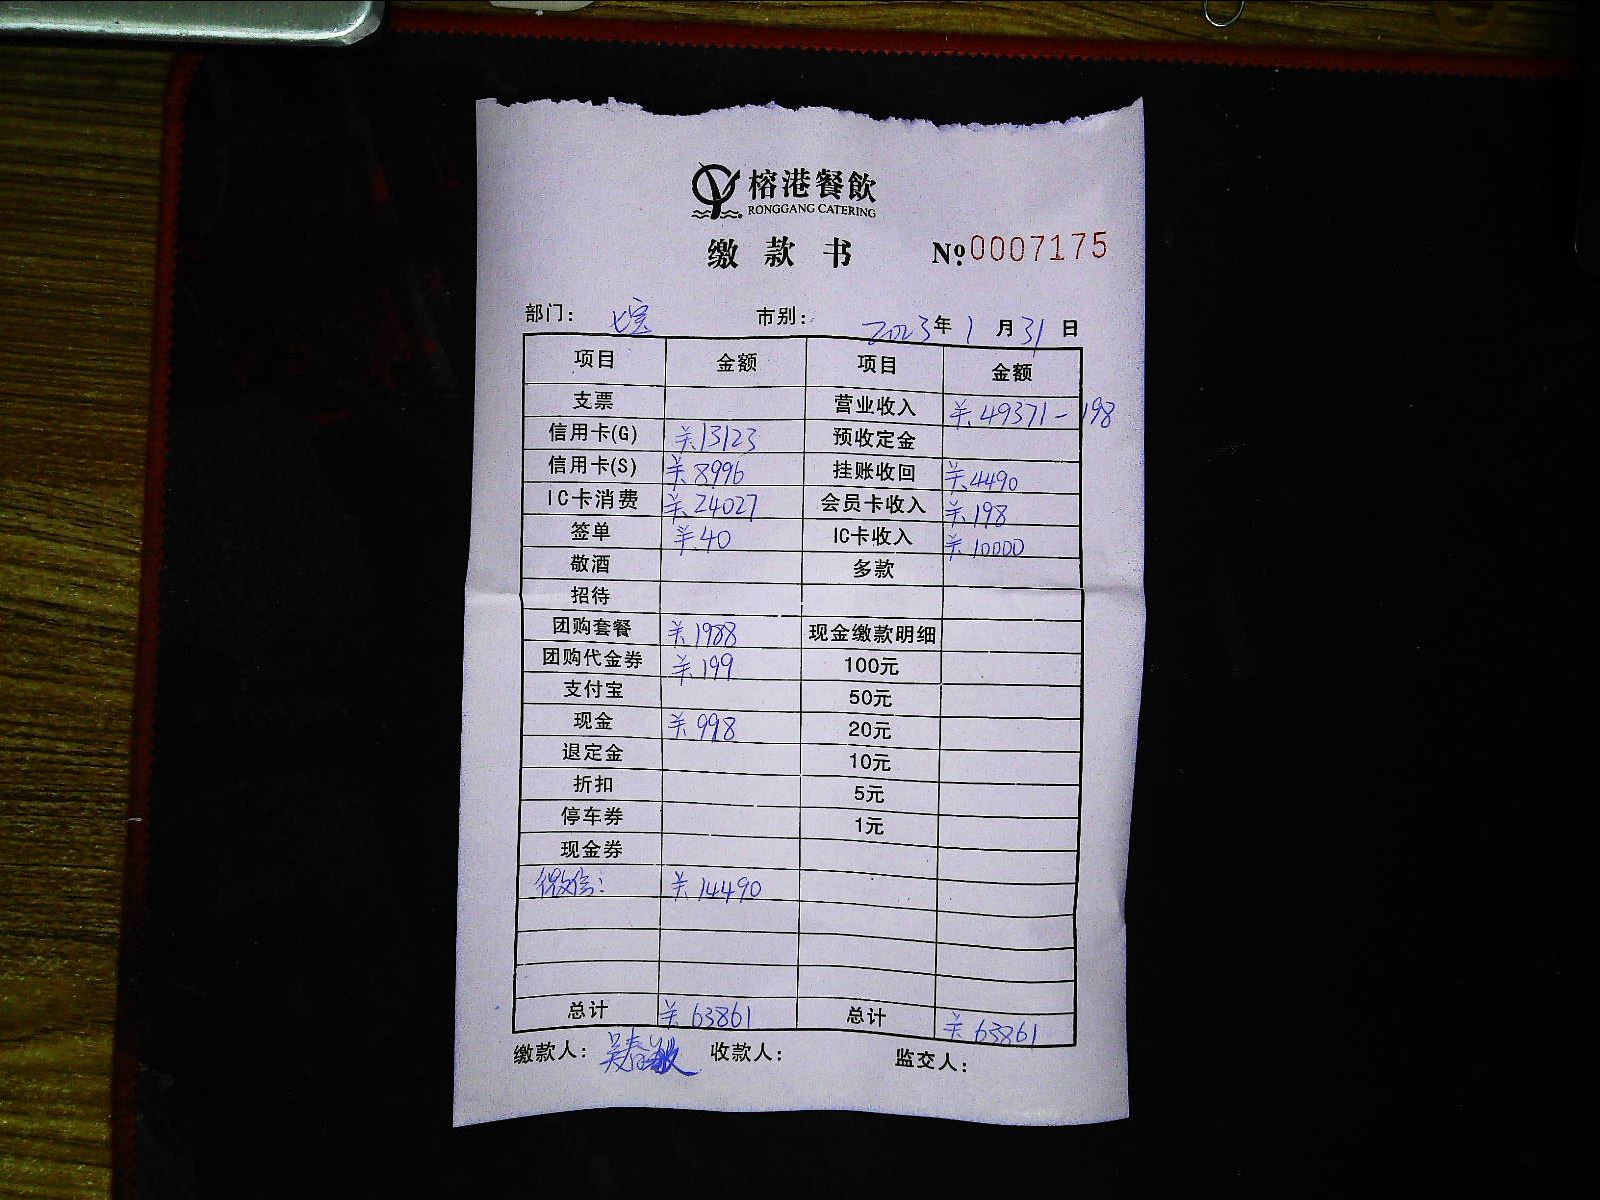 榕港餐飲
RONGGANG CATERING
缴款书 № 0007175
部门： 七宝 市别： 2023年 1月 31日
项目 金额 项目 金额
支票 营业收入 ¥49371-198
信用卡(G) ¥13123 预收定金
信用卡(S) ¥8996 挂账收回 ¥4490
IC卡消费 ¥24027 会员卡收入 ¥198
签单 ¥40 IC卡收入 ¥10000
敬酒 多款
招待
团购套餐 ¥1988 现金缴款明细
团购代金券 ¥199 100元
支付宝 50元
现金 ¥998 20元
退定金 10元
折扣 5元
停车券 1元
现金券
微信： ¥14490
总计 ¥63861 总计 ¥63861
缴款人： 吴春敏 收款人： 监交人：